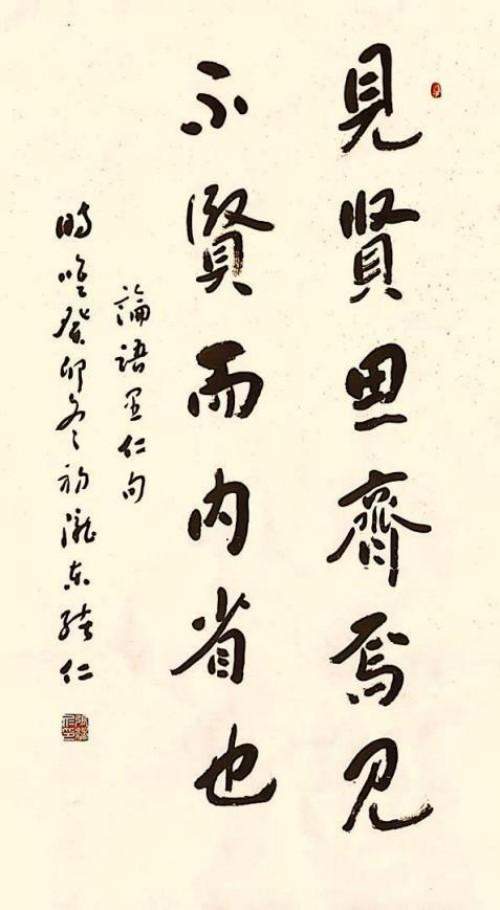 見賢思齊焉見
不賢而内省也
論語里仁句
時唯癸卯冬初瀧东 仁